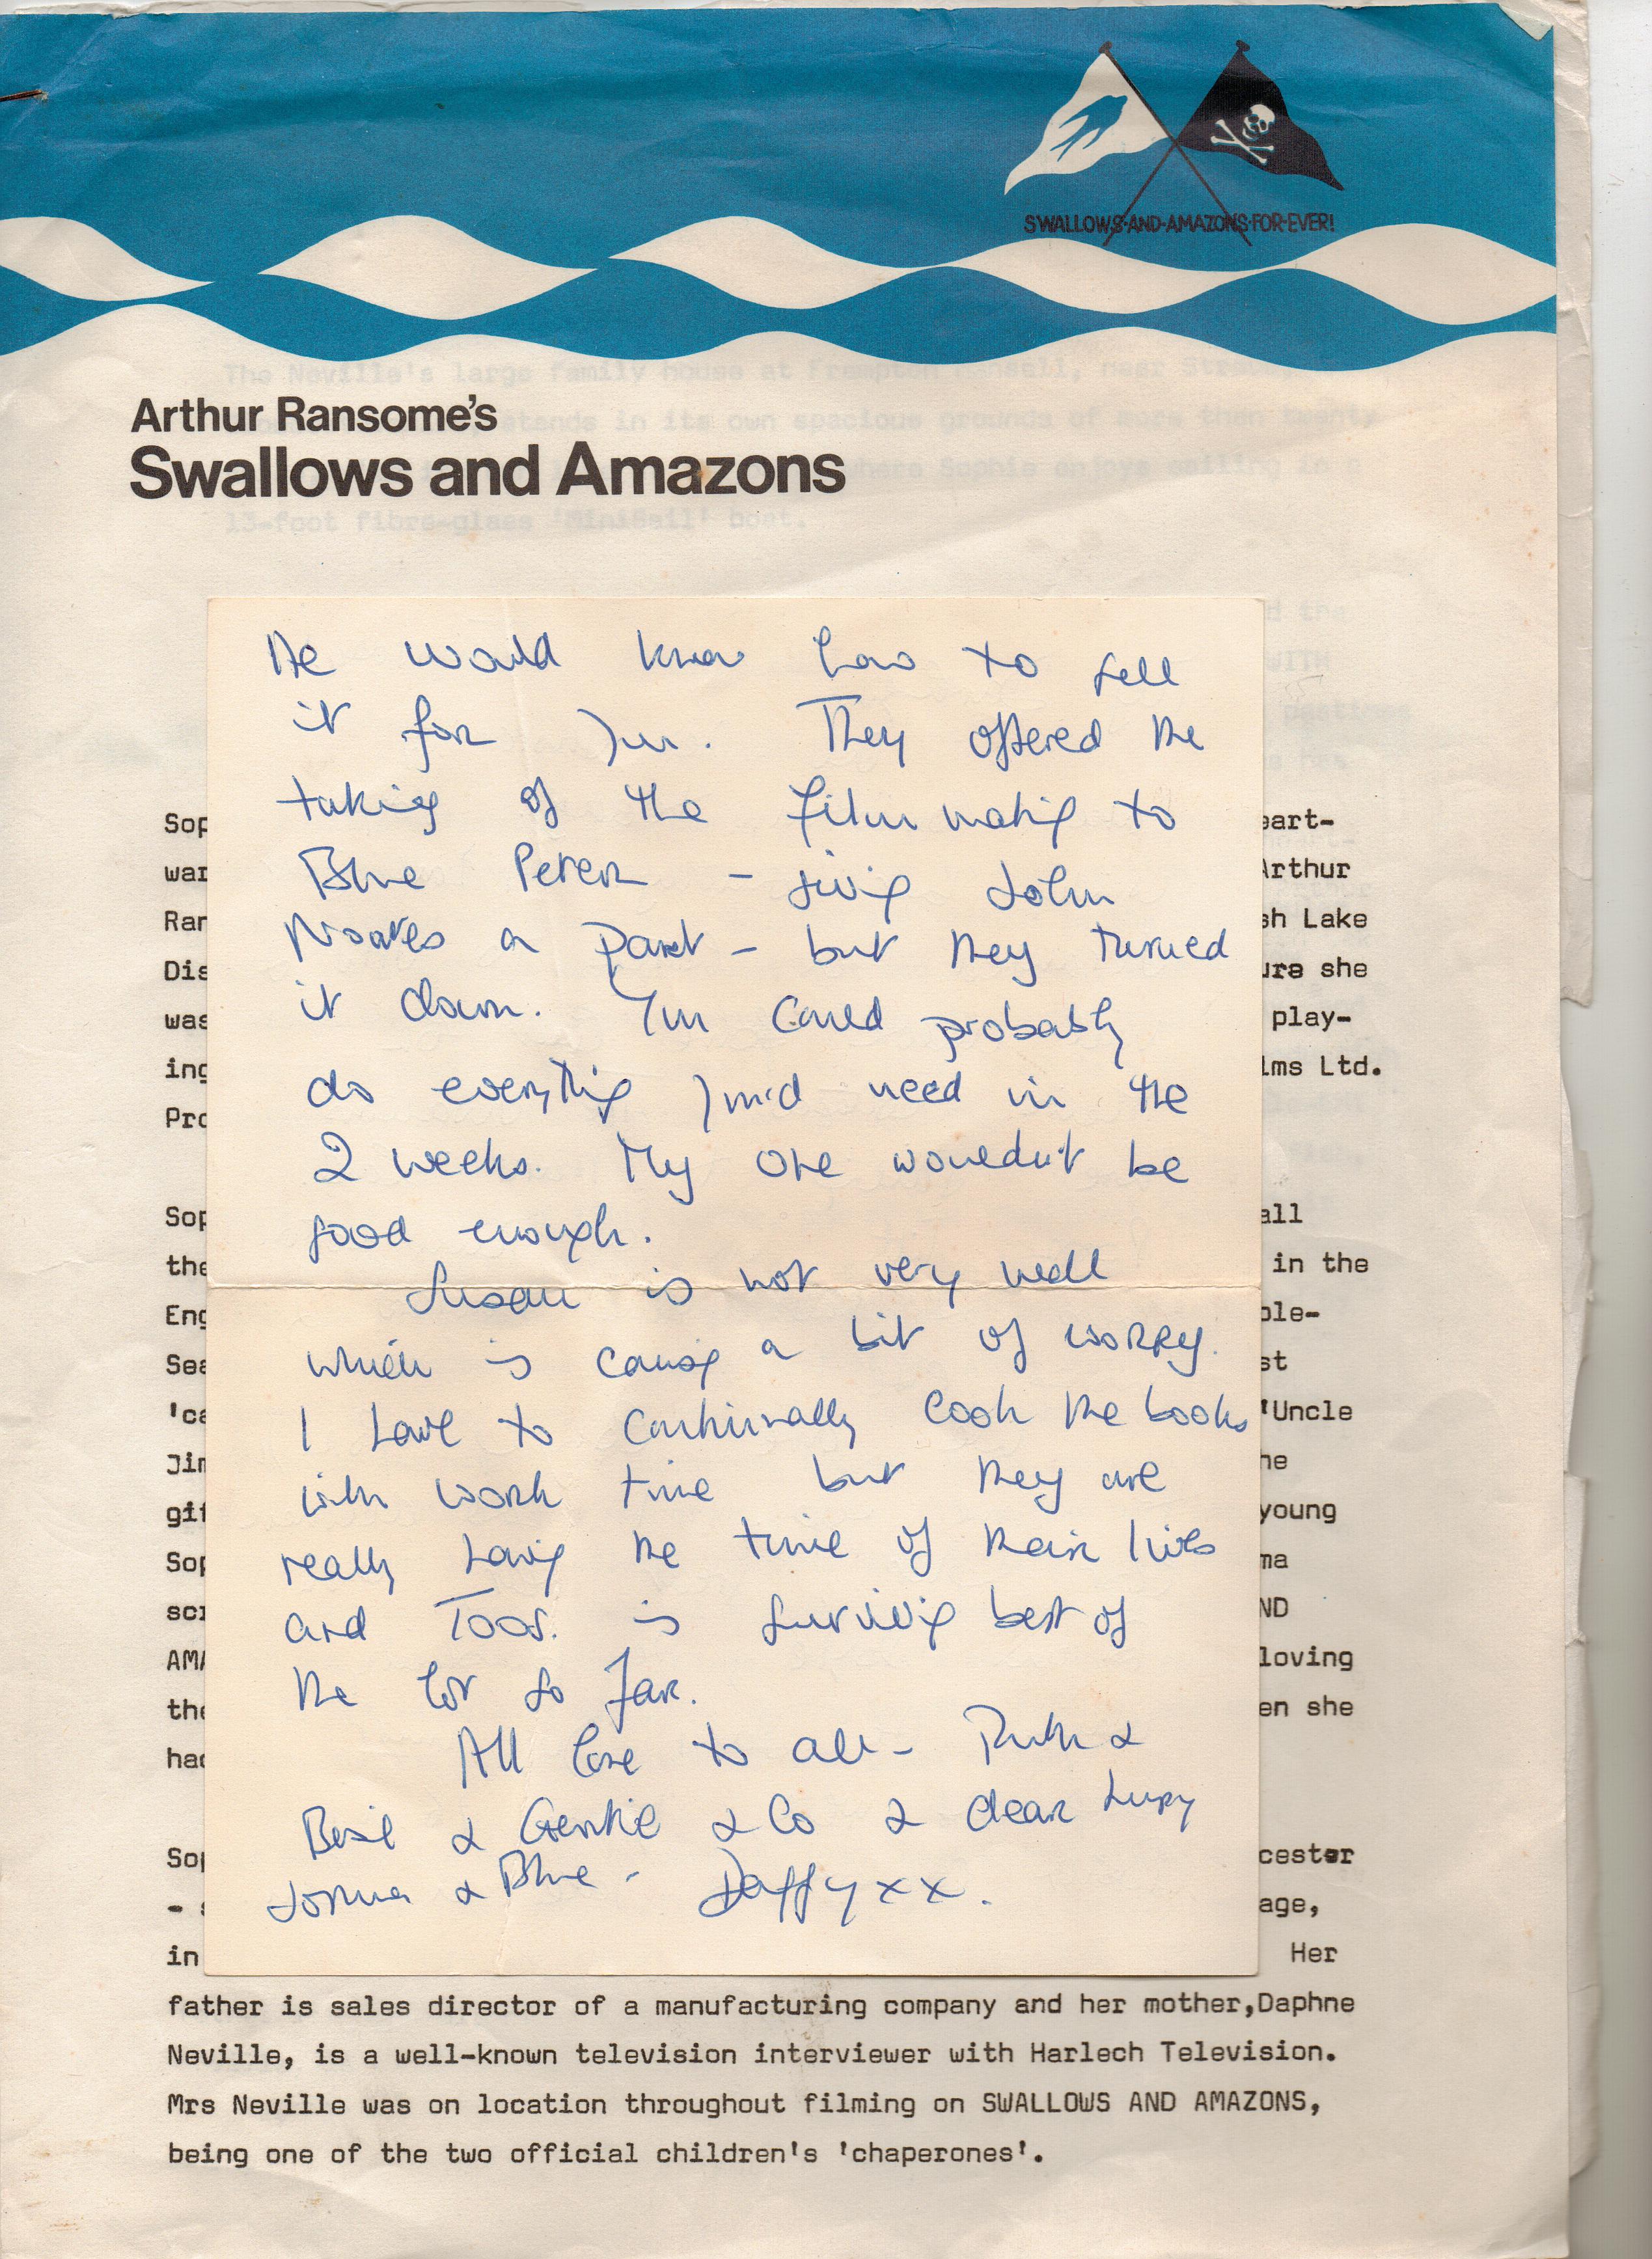 SWALLOWS·AND·AMAZONS·FOR·EVER!
Arthur Ransome's
Swallows and Amazons
The Neville's large family house at Frampton Mansell, near
stands in its own spacious grounds of more than twenty
where Sophie enjoys sailing in
13-foot fibre-glass 'MiniSail' boat.
He would know how to sell
it for you. They offered the
taking of the film making to
Blue Peter - giving John
Noakes a part - but they turned
it down. You could probably
do everything you'd need in the
2 weeks. My one wouldn't be
good enough.
Susan is not very well
which is causing a bit of worry.
I have to continually cook the books
with work time but they are
really having the time of their lives
and Toos. is surviving best of
the lot so far.
All love to all - Ruth &
Basil & Gentile & Co & dear Lupy
Joshua & Blue - Daffy xx.
d the
WITH
pastimes
Sop
eart-
war
Arthur
Ran
sh Lake
Dis
ure she
was
play-
ing
lms Ltd.
Pro
Sop
all
the
in the
Eng
ole-
Sea
st
'ca
'Uncle
Jim
he
gif
young
Sop
ma
scr
ND
AMA
loving
the
en she
had
Sop
cester
-
age,
in
Her
father is sales director of a manufacturing company and her mother,Daphne
Neville, is a well-known television interviewer with Harlech Television.
Mrs Neville was on location throughout filming on SWALLOWS AND AMAZONS,
being one of the two official children's 'chaperones'.